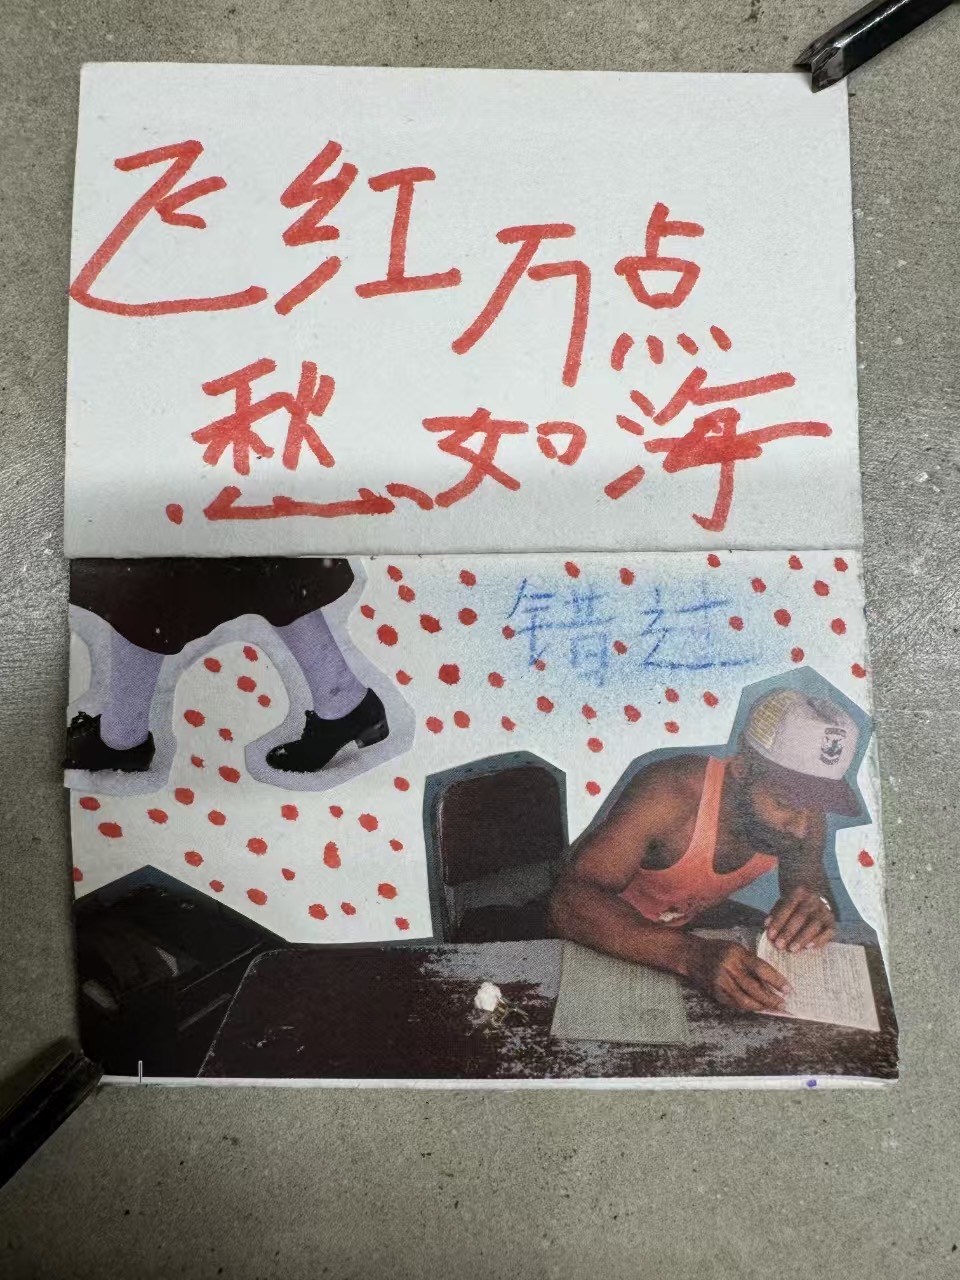 飞红万点
愁如海
错过